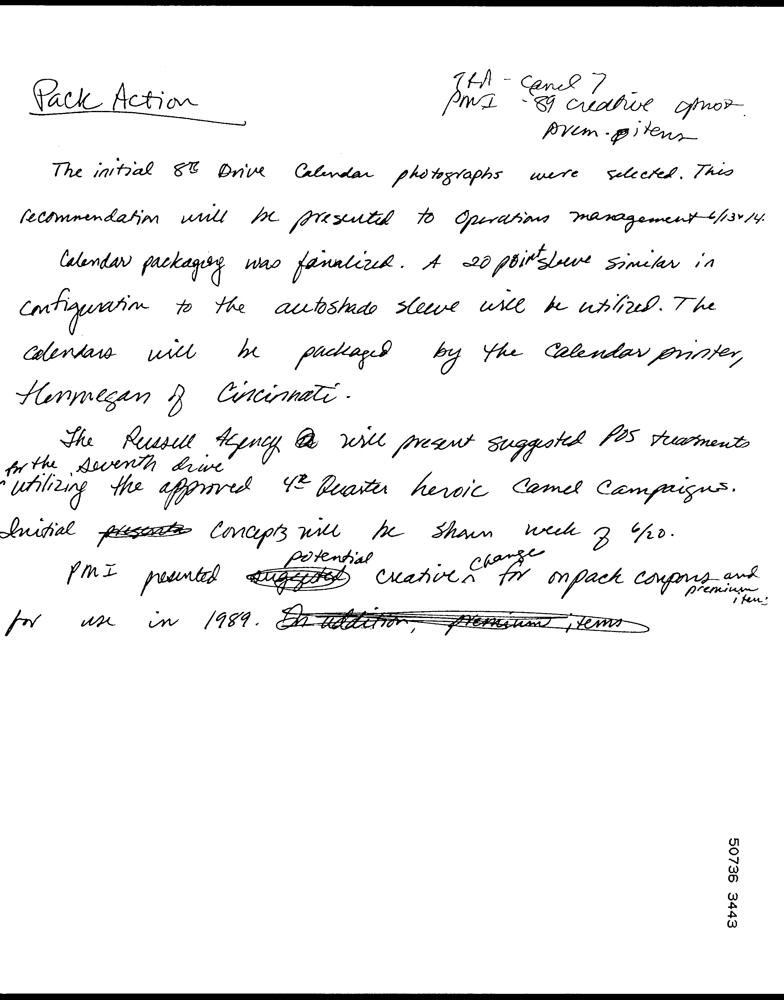 Pack Action
TRA - Camel 7
PMI - 89 creative
prem. items
The initial 8th Drive Calendar photographs were selected. This
recommendation will be presented to Operations management 6/13 14.
Calendar packaging was finalized. A 20 point sleeve similar in
configuration to the autoshade sleeve will be utilized. The
calendars will be packaged by the Calendar printer,
Hennegan of Cincinnati.
The Russell Agency will present suggested POS treatments
for the seventh drive
utilizing the approved 4th Quarter heroic Camel Campaigns.
Initial presents Concepts will be shown week of 6/20.
potential change
PMI presented suggested creative for onpack coupons and
premium items
for use in 1989. In addition, premium items
50736 3443